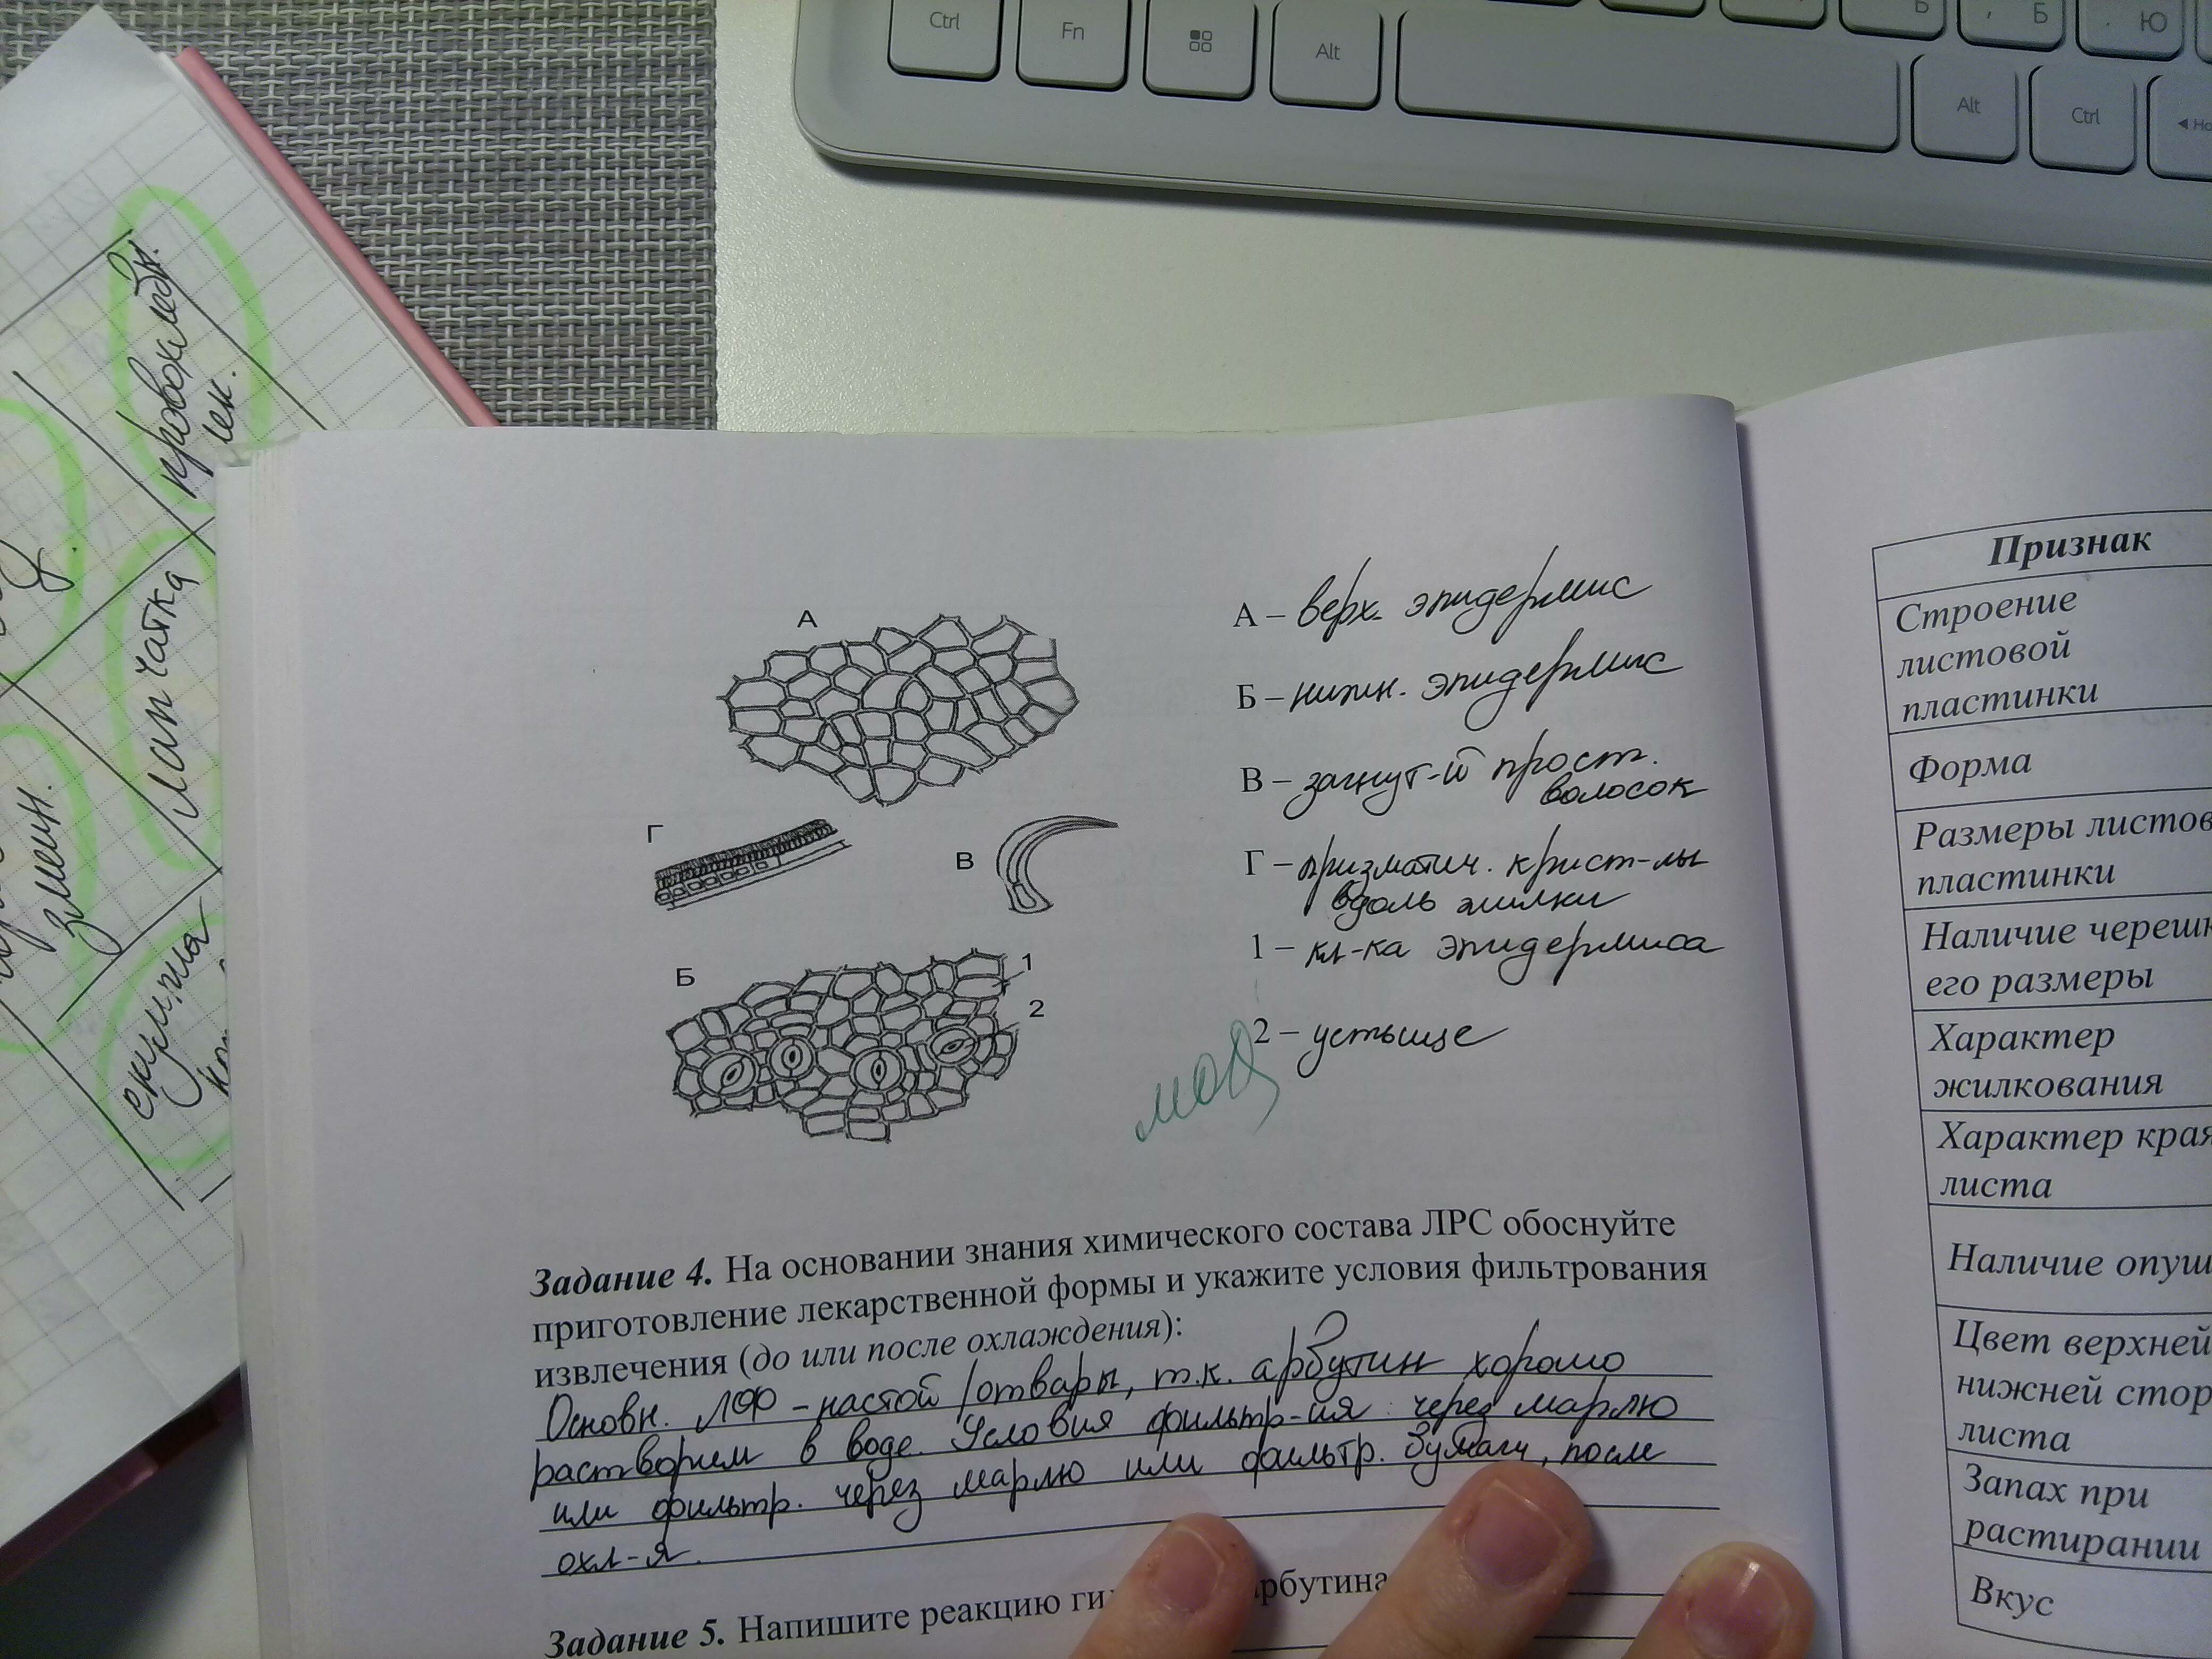 Ctrl
Fn
Alt
Alt
Ctrl
Б
Ю
лапчатка
змеин.
А
Г
В
Б
1
2
А – верх. эпидермис
Б – нижн. эпидермис
В – загнут-й прост.
волосок
Г – призматич. крист-лы
вдоль жилки
1 – кл-ка эпидермиса
2 – устьице
Задание 4. На основании знания химического состава ЛРС обоснуйте
приготовление лекарственной формы и укажите условия фильтрования
извлечения (до или после охлаждения):
Основн. ЛФ – настой/отвары, т.к. арбутин хорошо
растворим в воде. Условия фильтр-ия: через марлю
или фильтр. через марлю или фильтр. бумагу, после
охл-я.
Задание 5. Напишите реакцию ги рбутина
Признак
Строение
листовой
пластинки
Форма
Размеры листов
пластинки
Наличие черешк
его размеры
Характер
жилкования
Характер края
листа
Наличие опуш
Цвет верхней
нижней стор
листа
Запах при
растирании
Вкус